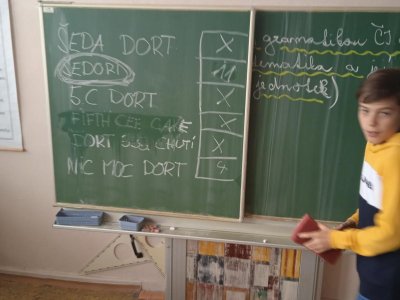 ŠEDA DORT X
EDORT 11
5.C DORT X
FIFTH CEE CAKE X
DORT CHUTÍ X
NIC MOC DORT 4
gramatikou ČJ a
tematika a
jednotek)